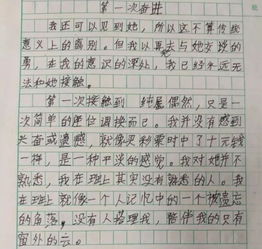 第一次奋进
我还可以见到她，所以这不算传统
意义上的离别。但我以再去与她交谈的
勇，在我的意识的深处，我已经永远无
法和她接触。
第一次接触到 纯属偶然，只是一
次简单的座位调换而已。我并没有感到
兴奋或遗憾，就像买彩票时中了十元钱
一样，是一种平淡的感觉。我对她并不
熟悉，我在班上其实没有熟悉的人。我
在班上就像一个人记忆中的一个被遗忘
的角落，没有人搭理我，陪伴我的只有
窗外的云。